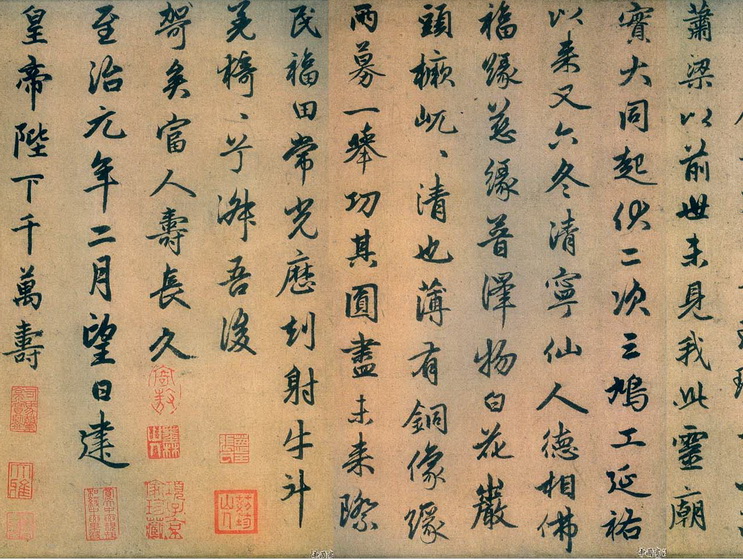 蕭梁以前世未見我此靈廟
實大同起伏二次三鳩工延祐
以来又六冬清寧仙人德相佛
福緣慈緣普澤物白花巖
頭橛屼〻清也薄有銅像緣
兩募一舉功其圓盡未来際
民福田常光歷刧射牛斗
羌椅〻兮淋吾後
哿矣富人壽長久
至治元年二月望日建
皇帝陛下千萬壽